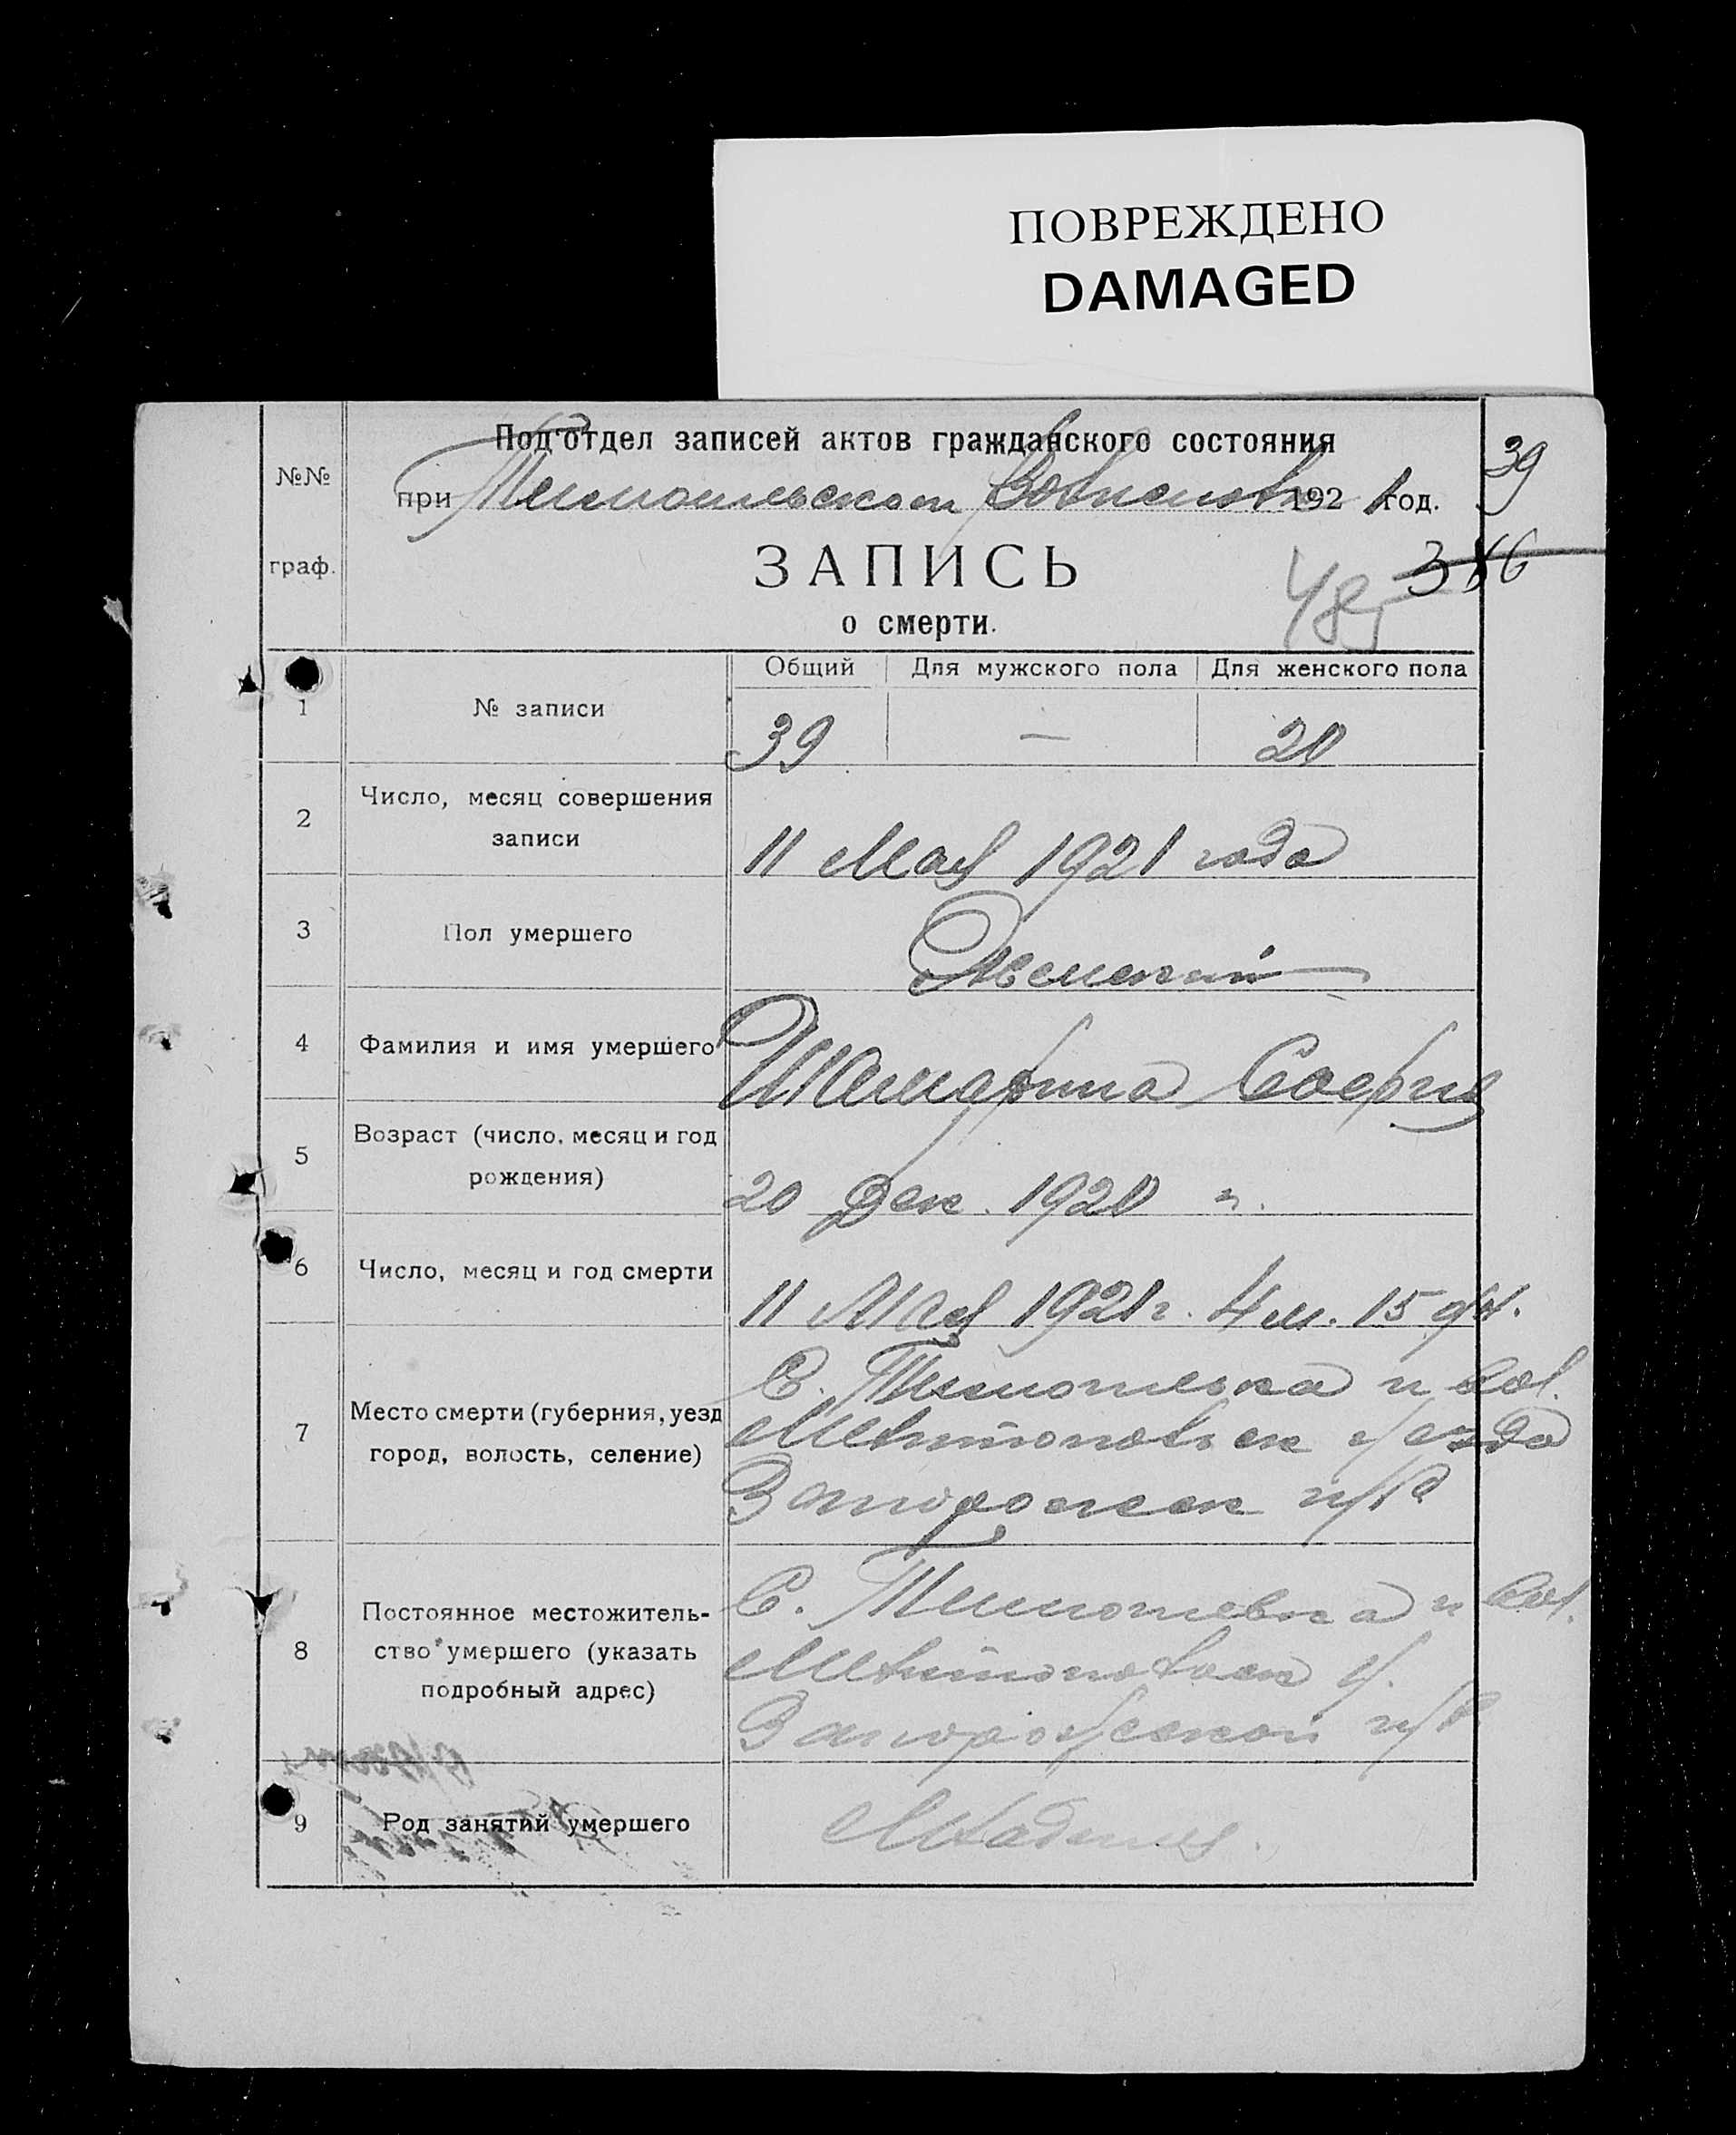 ПОВРЕЖДЕНО
DAMAGED
Под'отдел записей актов гражданского состояния
39
№№
при 1921 год.
граф.
ЗАПИСЬ
485
о смерти.
Общий Для мужского пола Для женского пола
1 № записи 39 — 20
2 Число, месяц совершения
записи
11 Мая 1921 года
3 Пол умершего Женский
4 Фамилия и имя умершего София
5 Возраст (число, месяц и год
рождения)
20 Дек. 1920 г.
6 Число, месяц и год смерти
11 Мая 1921 г. 4 м. 15 дн.
7 Место смерти (губерния, уезд
город, волость, селение)
С. Тимошевка и вол.
Мелитопольск уезда
Запорожск губ
8 Постоянное местожитель-
ство умершего (указать
подробный адрес)
С. Тимошевка и вол.
Мелитопольск у.
Запорожской губ
9 Род занятий умершего Младенец.